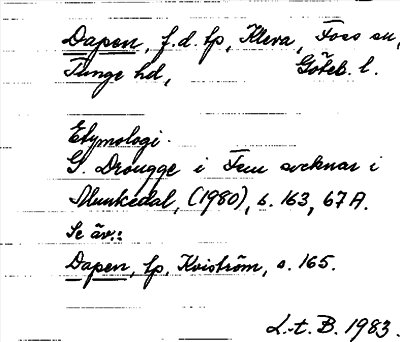 Dapen, f.d. lp, Kleva, Foss sn,
Tunge hd, Göteb. l.
Etymologi.
G. Drougge i Fem socknar i
Munkedal, (1980), s. 163, 67A.
Se äv.:
Dapen, lp, Kviström, s. 165.
L.t. B. 1983.